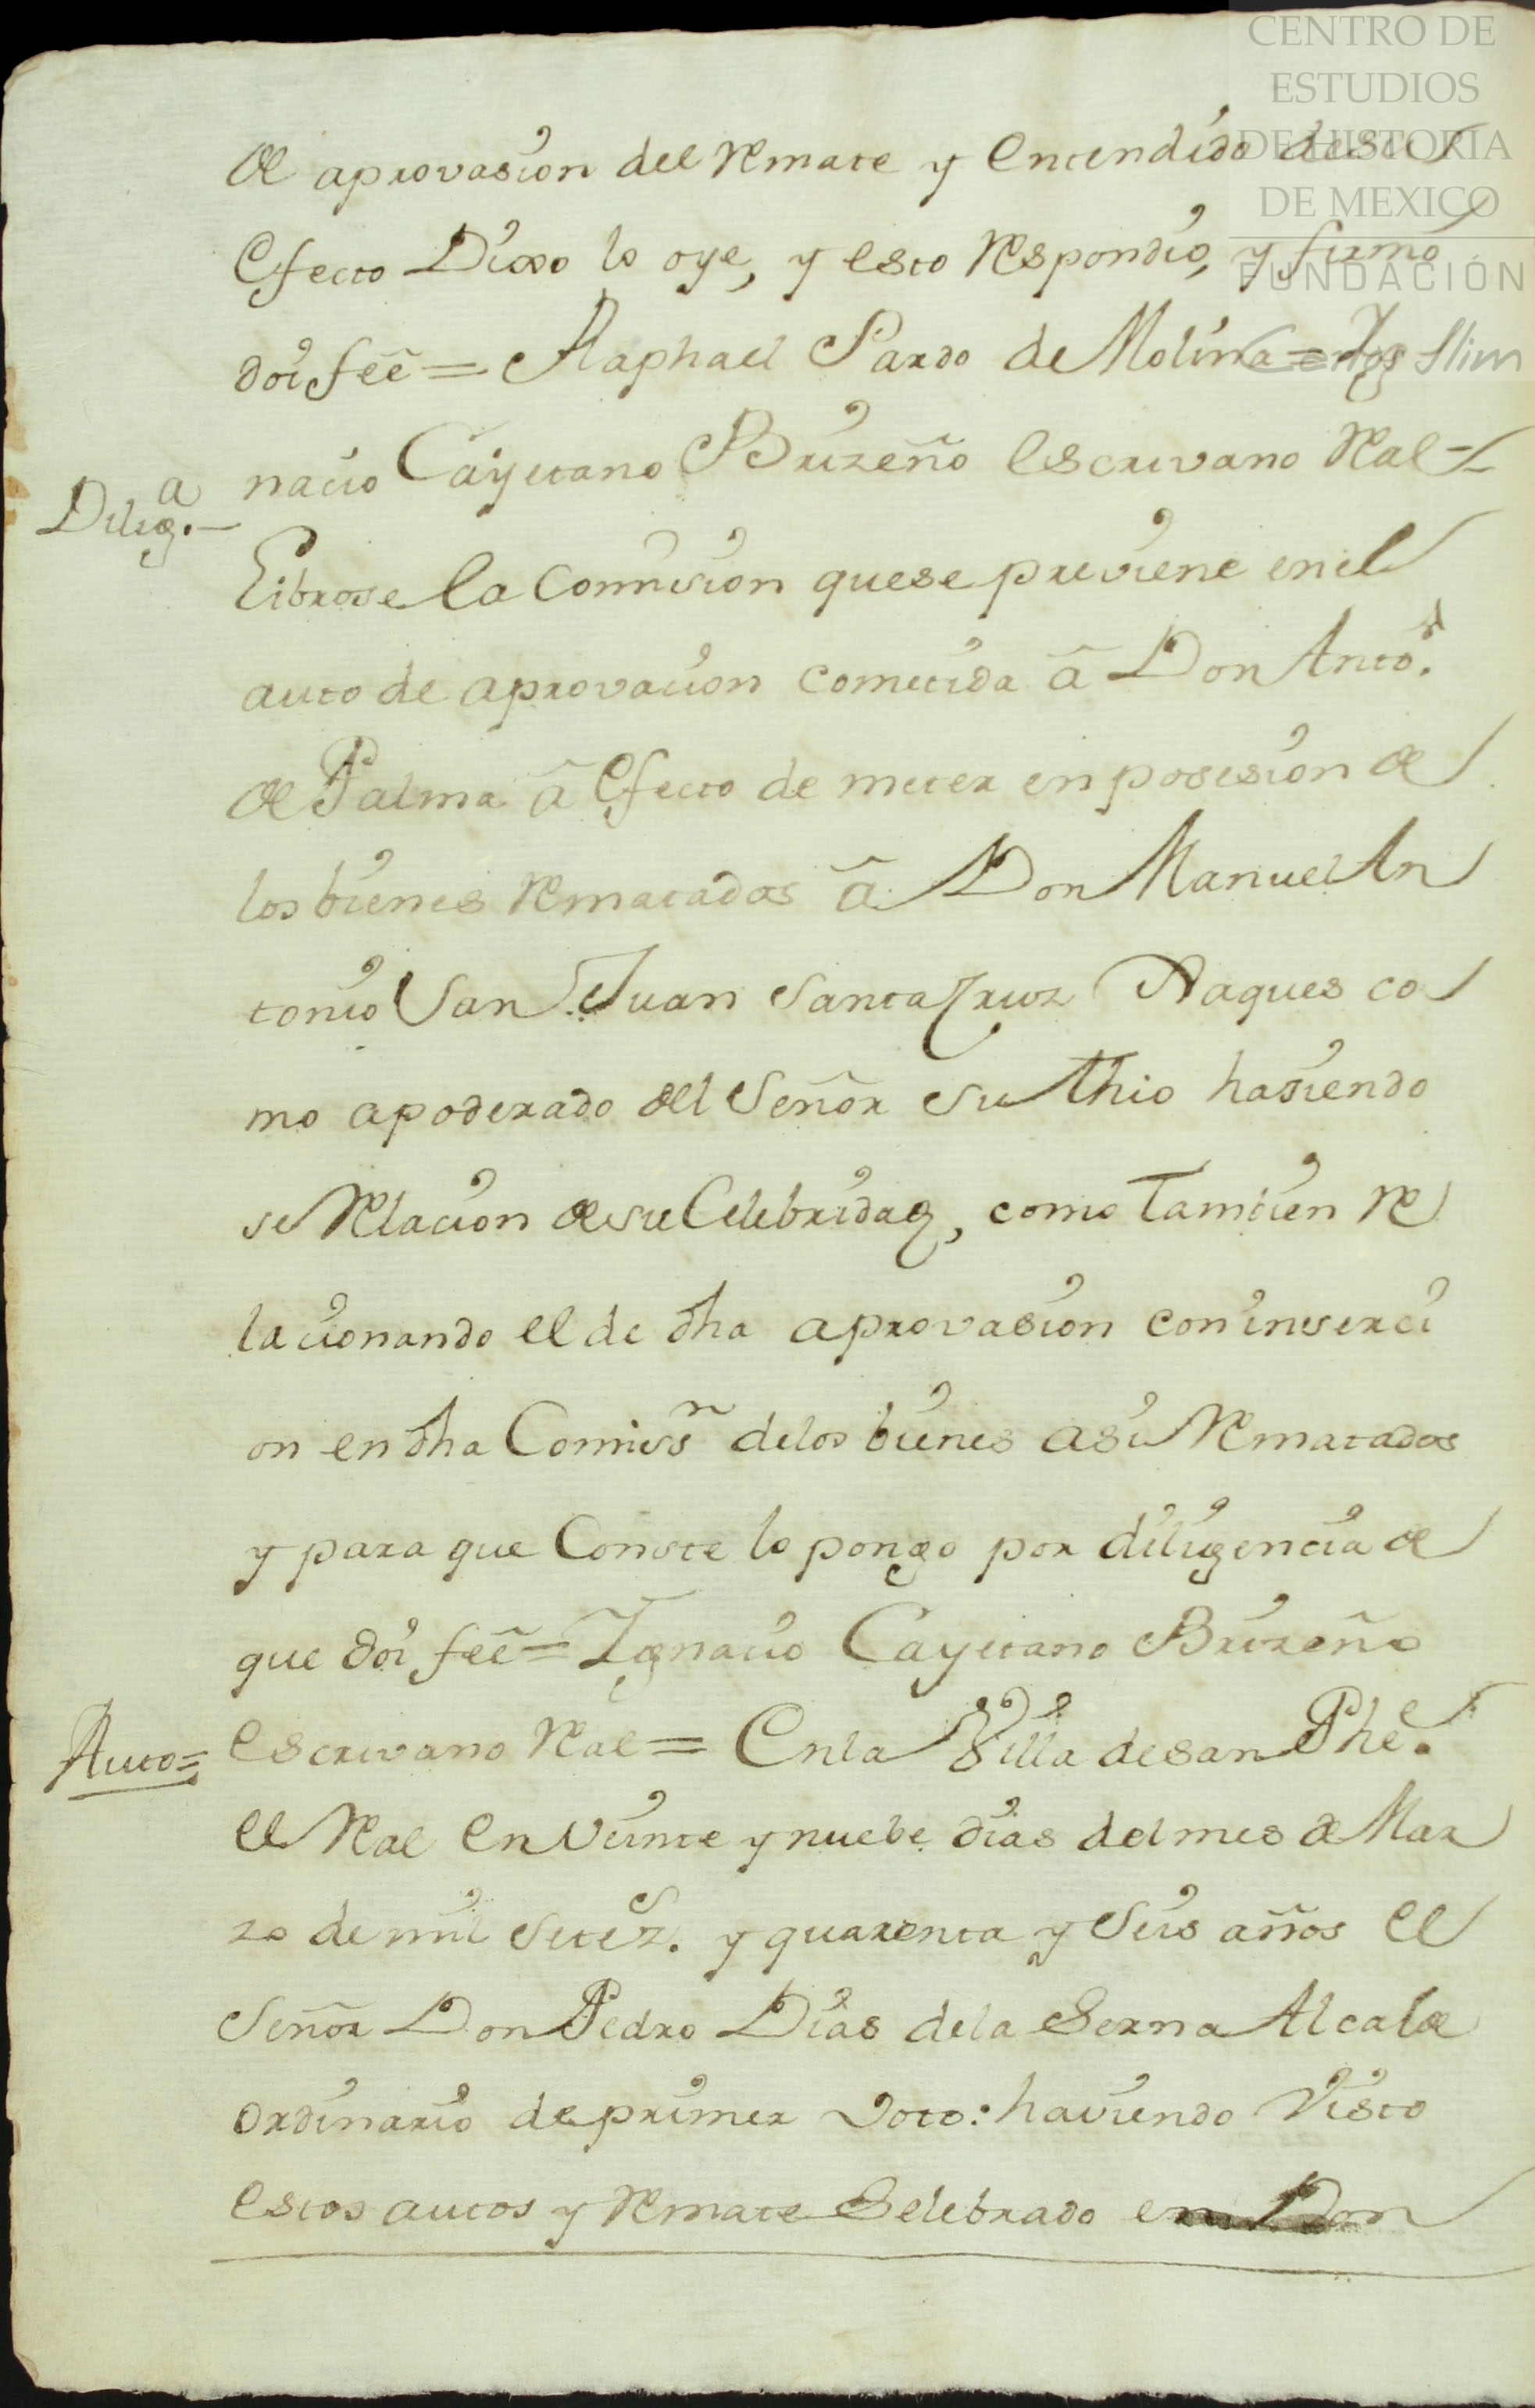 CENTRO DE
ESTUDIOS
DE HISTORIA
DE MEXICO
FUNDACIÓN
Carlos Slim
de aprovasion del Remate y entendido desu
efecto Dixo lo oye, y esto Respondio, y firmó
doi feê = Raphael Pardo de Molina = Yg
nacio Cayetano Brizeño escrivano Real =
Dilig.ª
Librose la Comision quese previene en el
auto de aprovacion cometida â Don Anto.
de Palma â efecto de meter en posesion de
los bienes Rematados â Don Manuel An
tonio San Juan Santa Cruz Raques co
mo apoderado del Señor su thio hasiendo
se Relacion de su Celebridad, como tambien Re
lacionando el de dha aprovasion con inserci
on en dha Comisn delos bienes asi Rematados
y para que Conste lo pongo por diligencia de
que doi feê = Ignacio Cayetano Brizeño
Auto =
escrivano Real = Enla Villa de san Phe.
el Real en Veinte y nuebe dias del mes de Mar
zo de mil setez.s y quarenta y seis años el
Señor Don Pedro Dias dela Serna Alcalde
ordinario de primer voto: haviendo Visto
estos autos y Remate Selebrado en Don